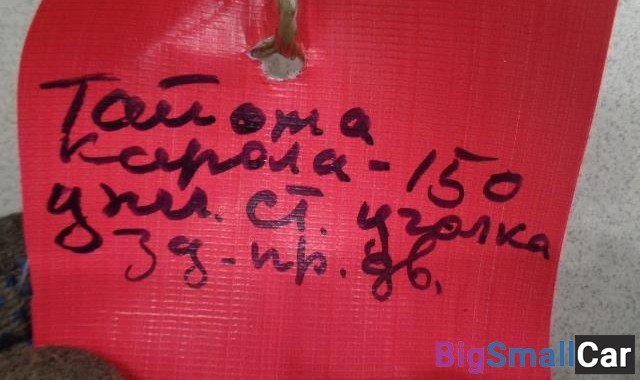 Тайожа
карола-150
упл. ст. уголка
зд-пр. дв.
BigSmallCar